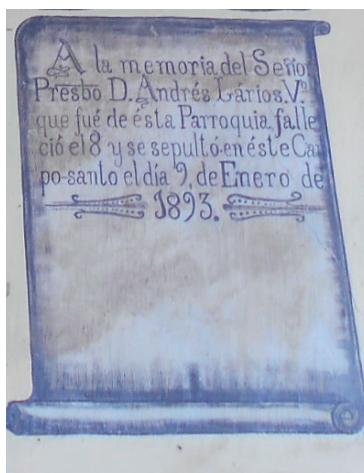 A la memoria del Señor
Presbo D. Andrés Lários. V.º
que fué de ésta Parroquia, falle
ció el 8 y se sepultó en éste Ca
po-santo el día 9, de Enero de
1893.